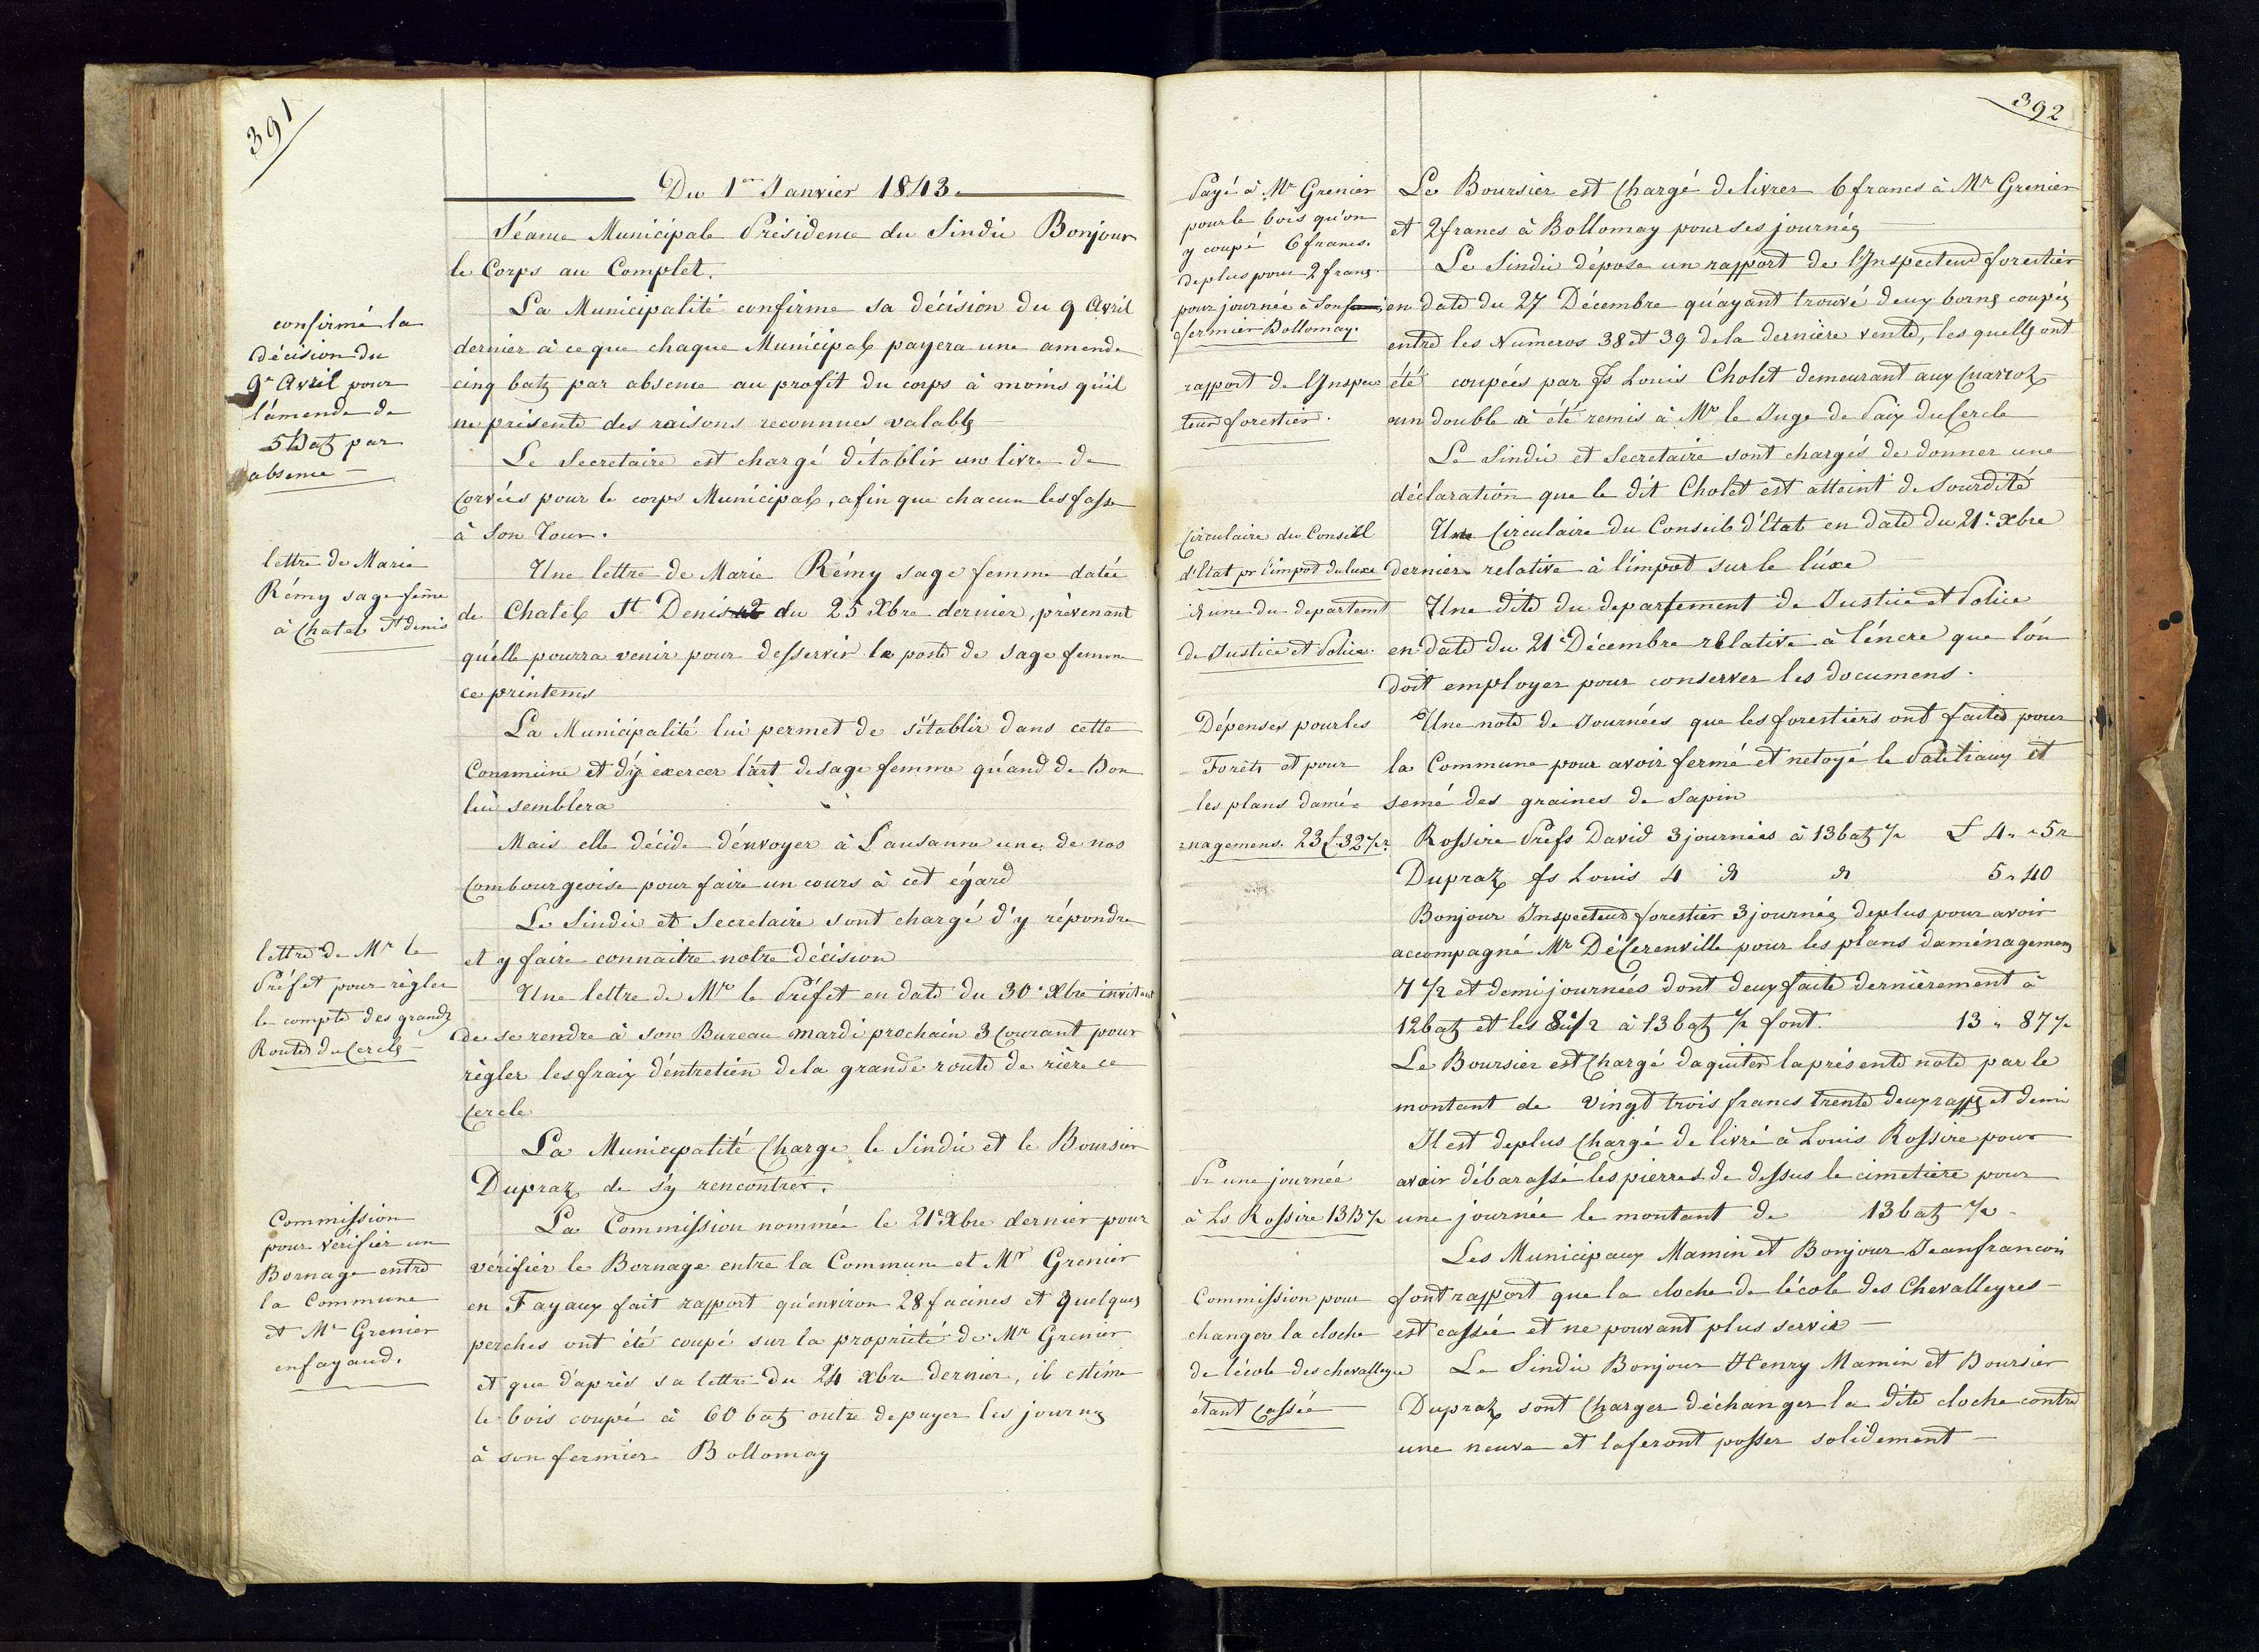 391
Du 1er Janvier 1843.
Séance Municipale Présidence du Sindic Bonjour
le Corps au Complet.
La Municipalité confirme sa décision du 9 Avril
dernier à ce que chaque Municipal payera une amende
cinq batz par absence au profit du corps à moins qu'il
ne présente des raisons reconnues valables
Le Secretaire est chargé d'établir un livre de
Corvées pour le corps Municipal, afin que chacun les fasse
à Son Tour.
Une lettre de Marie Rémy sage femme datée
de Chatel St Denis du 25 Xbre dernier, prévenant
qu'elle pourra venir pour desservir le poste de sage femme
ce printems
La Municipalité lui permet de s'établir dans cette
Commune et d'y exercer l'art de sage femme qu'and de Bon
lui semblera
Mais elle décide d'envoyer à Lausanne une de nos
Combourgeoise pour faire un cours à cet égard
Le Sindic et Secretaire sont chargé d'y répondre
et y faire connaitre notre décision
Une lettre de Mr le Préfet en date du 30e Xbre invitant
de se rendre à son Bureau mardi prochain 3 Courant pour
règler les fraix d'entretien de la grande route de rière ce
Cercle
La Municipalité Charge le Sindic et le Boursier
Dupraz de s'y rencontrer.
La Commission nommée le 21e Xbre dernier pour
vérifier le Bornage entre la Commune et Mr Grenier
en Fayaux fait rapport qu'environ 28 facines et quelques
perches ont été coupé sur la propriété de Mr Grenier
et que d'après sa lettre du 24 Xbre dernier, il estime
le bois coupé à 60 batz outre de payer les journés
à son fermier Bollomay
confirmé la
décision du
9e Avril pour
l'amende de
5 Batz par
absence
lettre de Marie
Rémy sage feme
à Chatel St denis
lettre de Mr le
Préfet pour règler
le compte des grandes
Routes du Cercle
Commission
pour vérifier un
Bornage entre
la Commune
et Mr Grenier
en fayaud.
392
Payé à Mr Grenier
pour le bois qu'on
y coupé 6 francs.
de plus pour 2 francs
pour journée à Son
fermier Bollomay.
rapport de l'Inspec
teur forestier.
Circulaire du Conseil
d'Etat pr l'impot du luxe
& une du departemt
de Justice et Police.
Dépenses pour les
Forêts et pour
les plans d'amé=
=nagemens. 23 f. 32 1/2 r.
Pr une journée
à Ls Rossire 13 B 1/2
Commission pour
changer la cloche
de l'école des chevalleyre
étant Cassée
Le Boursier est Chargé de livrer 6 francs à Mr Grenier
et 2 francs à Bollomay pour ses journés
Le Sindic dépose un rapport de l'Inspecteur forestier
en date du 27 Décembre qu'ayant trouvé deux borns coupés
entre les Numeros 38 et 39 de la dernière vente, les quells ont
été coupées par fs Louis Cholet demeurant aux
un double à été remis à Mr le Juge de Paix du Cercle
Le Sindic et Secretaire sont chargés de donner une
déclaration que le dit Cholet est atteint de Sourdité
Une Circulaire du Conseil d'Etat en date du 21e Xbre
dernier relative à l'impot sur le lúxe
Une dite du departement de Justice et Police
en date du 21e Décembre relative à l'encre que l'on
doit employer pour conserver les documens.
Une note de Journées que les forestiers ont faites pour
la Commune pour avoir fermé et netoyé le et
semé des graines de Sapin
Rossire Prefs David 3 journées à 13 batz 1/2 £ 4 " 5
Dupraz fs Louis 4 d d 5 " 40
Bonjour Inspecteur forestier 3 journés de plus pour avoir
accompagné Mr DéCerenville pour les plans d'aménagemens
7 1/2 et demi journées dont deux faite dernièrement à
12 batz et les 8 1/2 à 13 batz 1/2 font. 13 " 87 1/2
Le Boursier est Chargé daquiter la présente note par le
montant de vingt trois francs trente deux rapps et demi
Il est de plus Chargé de livré à Louis Rossire pour
avoir débarassé les pierres de dessus le cimetière pour
une journée le montant de 13 batz 1/2
Les Municipaux Mamin et Bonjour Jeanfrancois
font rapport que la cloche de l'école des Chevalleyres
est cassée et ne pouvant plus servir
Le Sindic Bonjour Henry Mamin et Boursier
Dupraz sont Charger d'échanger la dite cloche contre
une neuve et la feront posser solidement